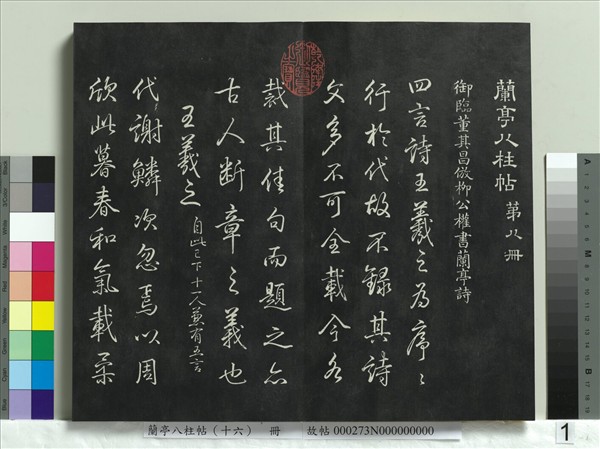 蘭亭八柱帖 第八冊
御臨董其昌倣柳公權書蘭亭詩
四言詩王羲之為序〻
行於代故不錄其詩
文多不可全載今各
裁其佳句而題之亦
古人断章之義也
王羲之 自此已下十一人兼有五言
代謝鱗次忽焉以周
欣此暮春和氣載柔
蘭亭八柱帖(十六) 冊 故帖 000273N000000000
1